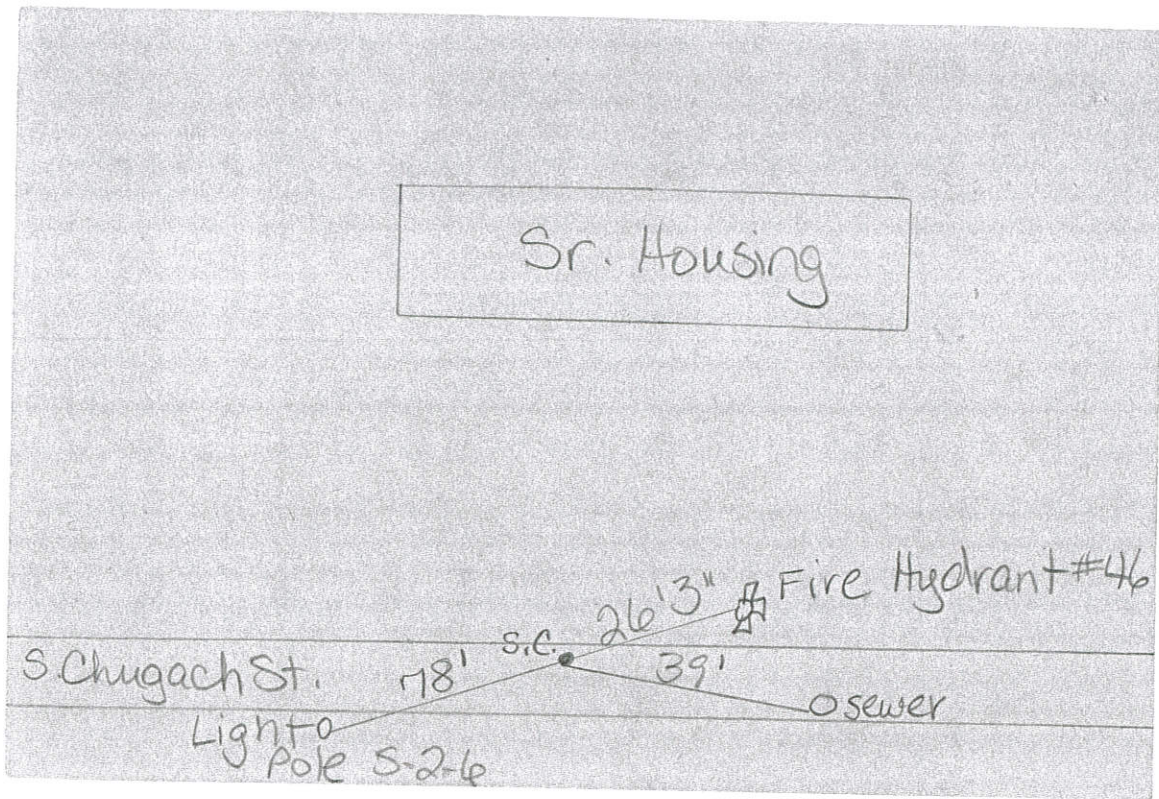 Sr. Housing
Fire Hydrant #46
26'3"
S.C.
S. Chugach St.
78'
39'
sewer
Light
Pole S-2-6